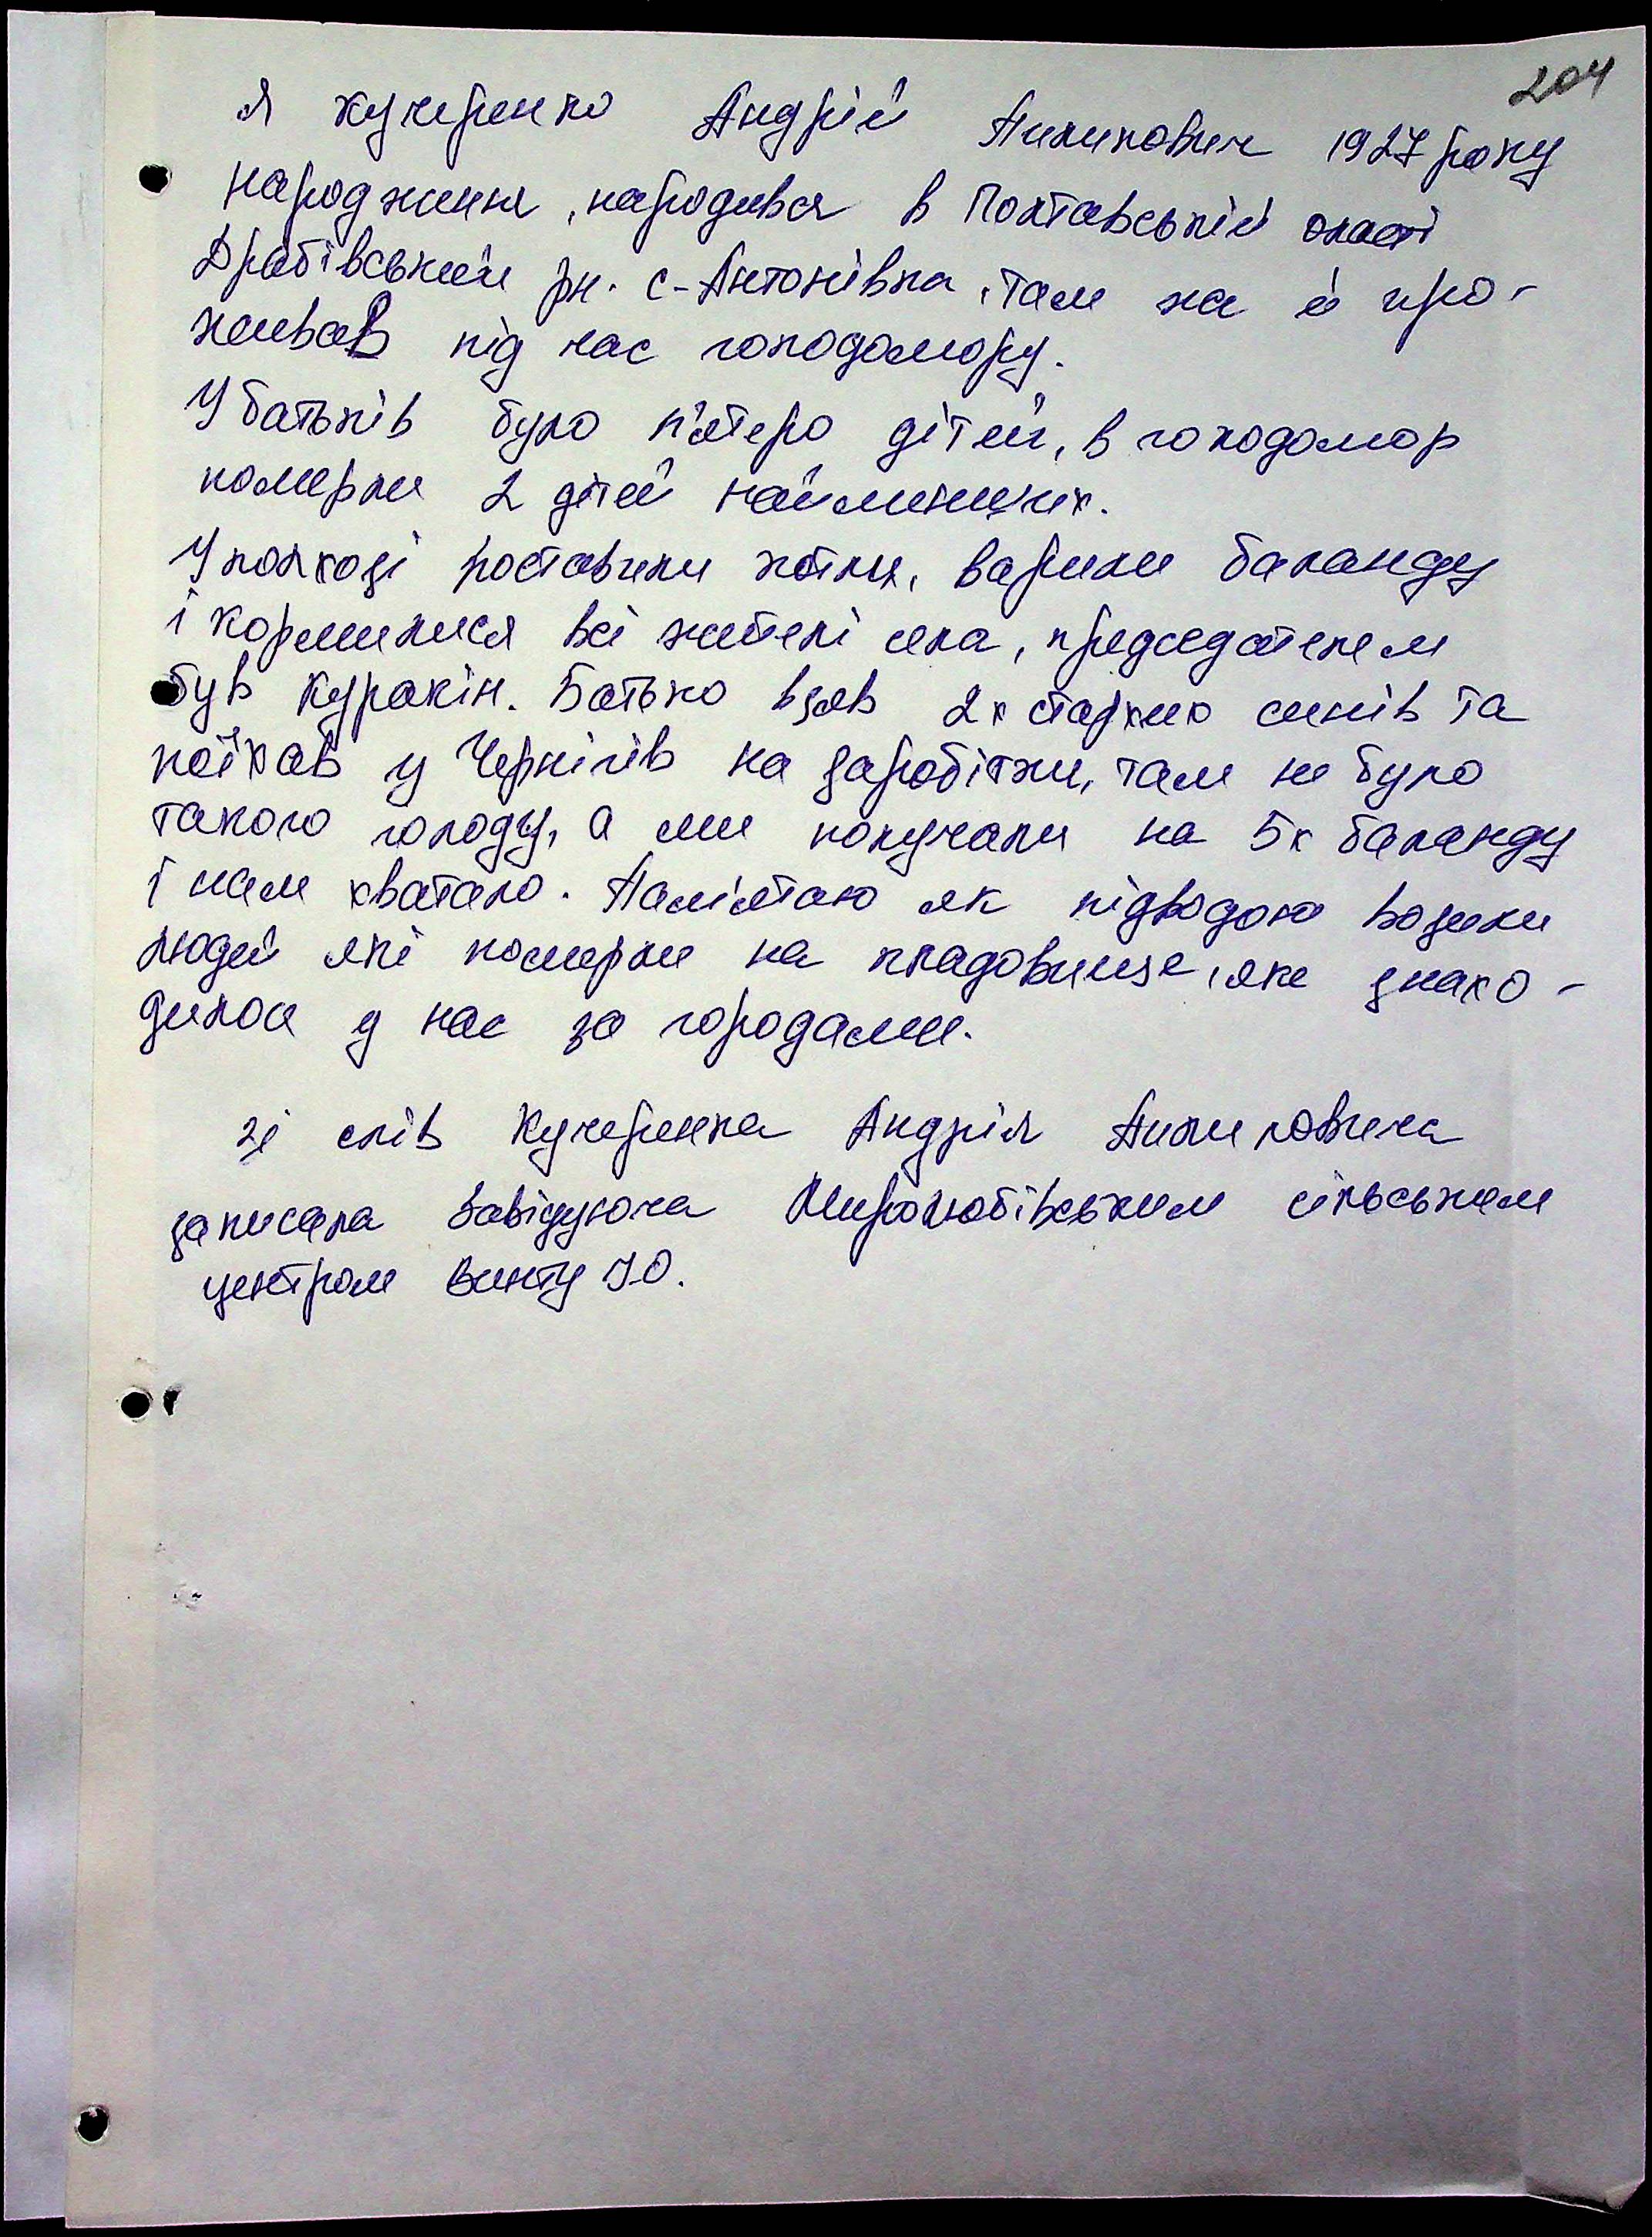 204
Я Кучеренко Андрій Пилипович 1927 року
народження, народився в Полтавській оласті
Драбівський рн. с-Антонівка, там жа й про-
живав під час голодомору.
У батьків було п'ятеро дітей, в голодомор
померли 2 дітей найменших.
У колхозі роставили котли, варили баланду
і кормилися всі жителі села, председателем
був Куракін. Батько взяв 2х старших синів та
поїхав у Чернігів на заробітки, там не було
такого голоду, а ми получали на 5х баланду
і нам хватало. Памілтаю як підводою возили
людей які померли на кладовище, яке знахо-
дилося у нас за городами.
зі слів Кучеренка Андрія Пилиповича
записала Завідуюча Миролюбівським сільським
центром Винту І.О.